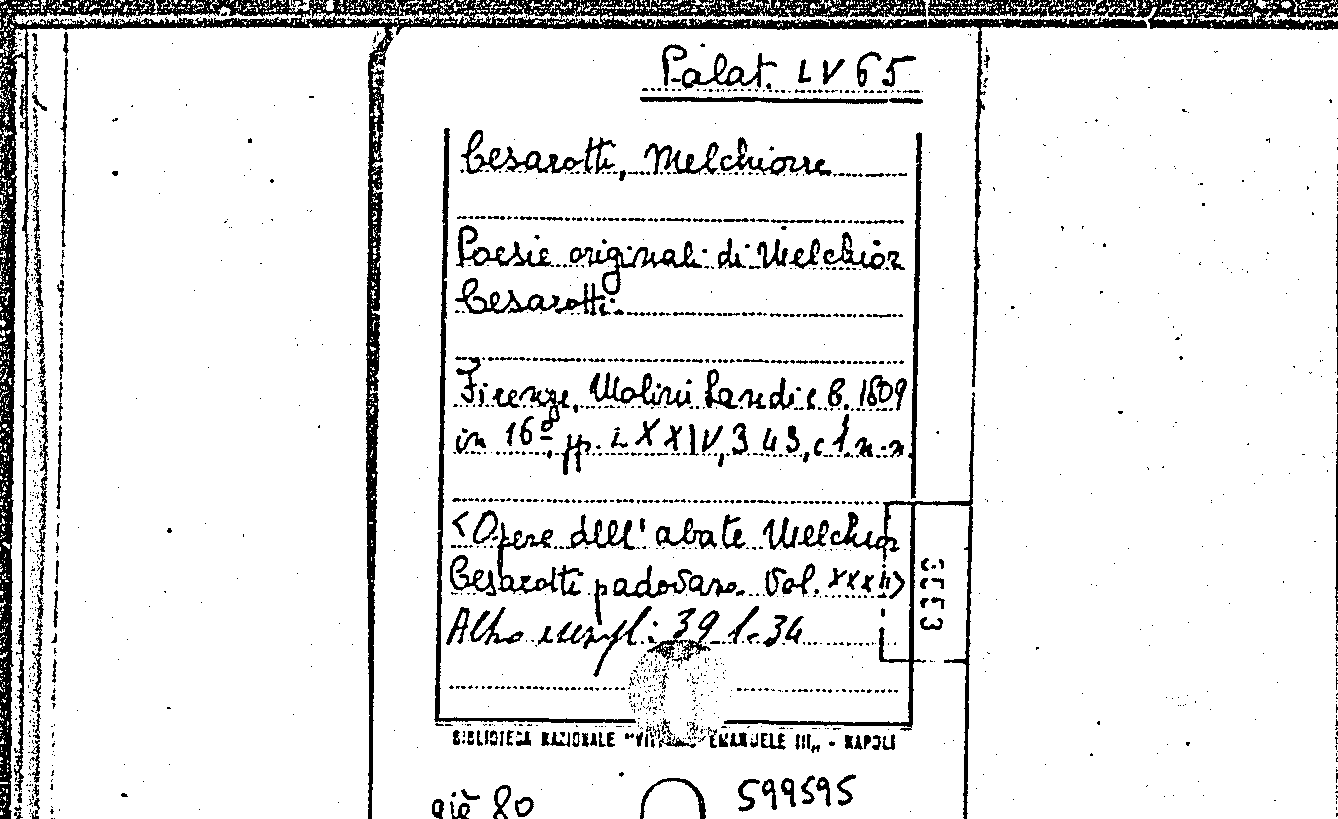 Palat. LV 65
Cesarotti, Melchiorre
Poesie originali di Melchior
Cesarotti.
Firenze, Molini Landi e C. 1809
in 16º, pp. LXXIV, 343, c 1. n. n.
<Opere dell'abate Melchior
Cesarotti padovano. Vol. XXXII>
Altro esempl: 39 l. 34
BIBLIOTECA NAZIONALE "VITT EMANUELE III„ - NAPOLI
già 80
599595